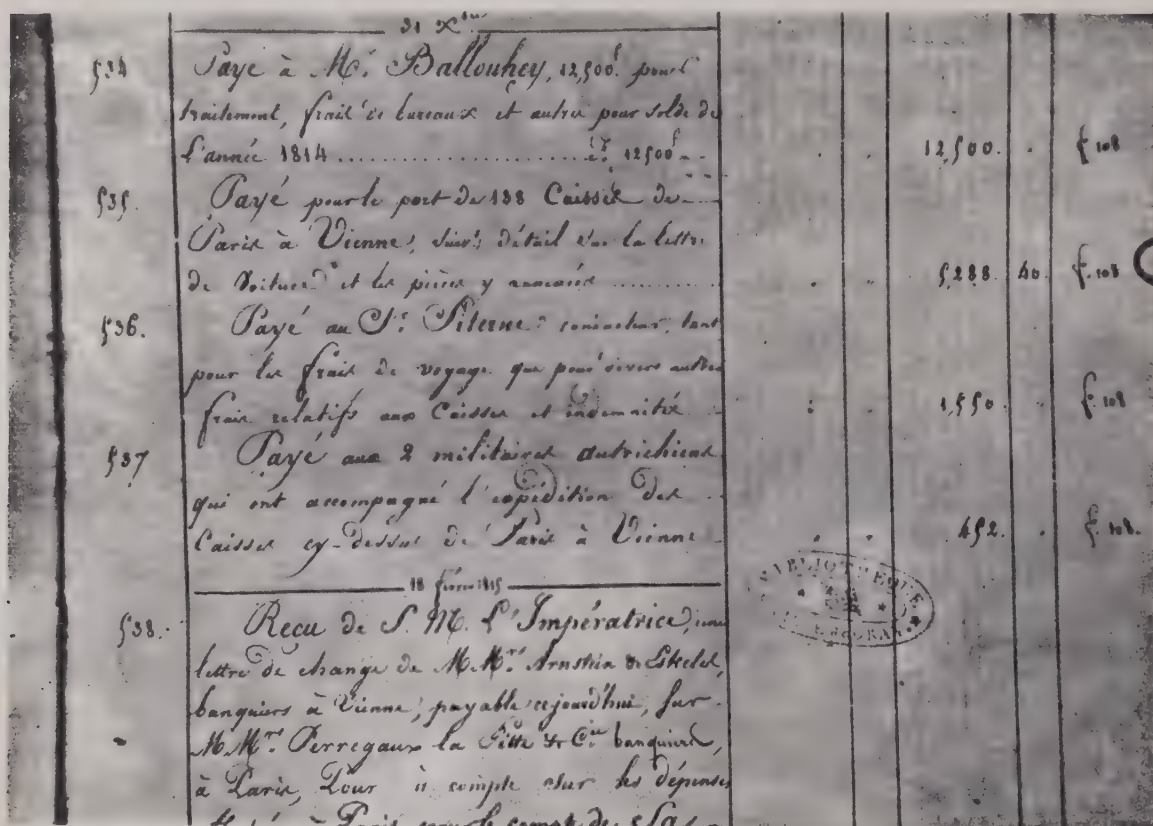 31 Xbre
534 Payé à Mr. Ballouhey, 12,500f. pour
traitement, frais de bureaux et autres pour solde de
l'année 1814 .................... 12500f 12,500. f. 108
535. Payé pour le port de 138 Caisses de
Paris à Vienne, suivt. détail sur la lettre
de Voiture et les pièces y annexées ........... 5,288. 40. f. 108
536. Payé au Sr. tant
pour les frais de voyage que pour divers autres
frais relatifs aux Caisses et indemnité 1,550 f. 108
537 Payé aux 2 militaires autrichiens
qui ont accompagné l'expédition des
Caisses cy-dessus de Paris à Vienne 452. f. 108.
18 février 1815
538. Reçu de S. M. L'Impératrice, une
lettre de change de M.Mrs. Arnstein & Eskeles,
banquiers à Vienne, payable cejourd'hui, sur
M.Mrs. Perregaux la fitte & Cie. banquiers,
à Paris, Pour à compte sur les dépenses
à Paris pour le compte de Sa
BIBLIOTHEQUE